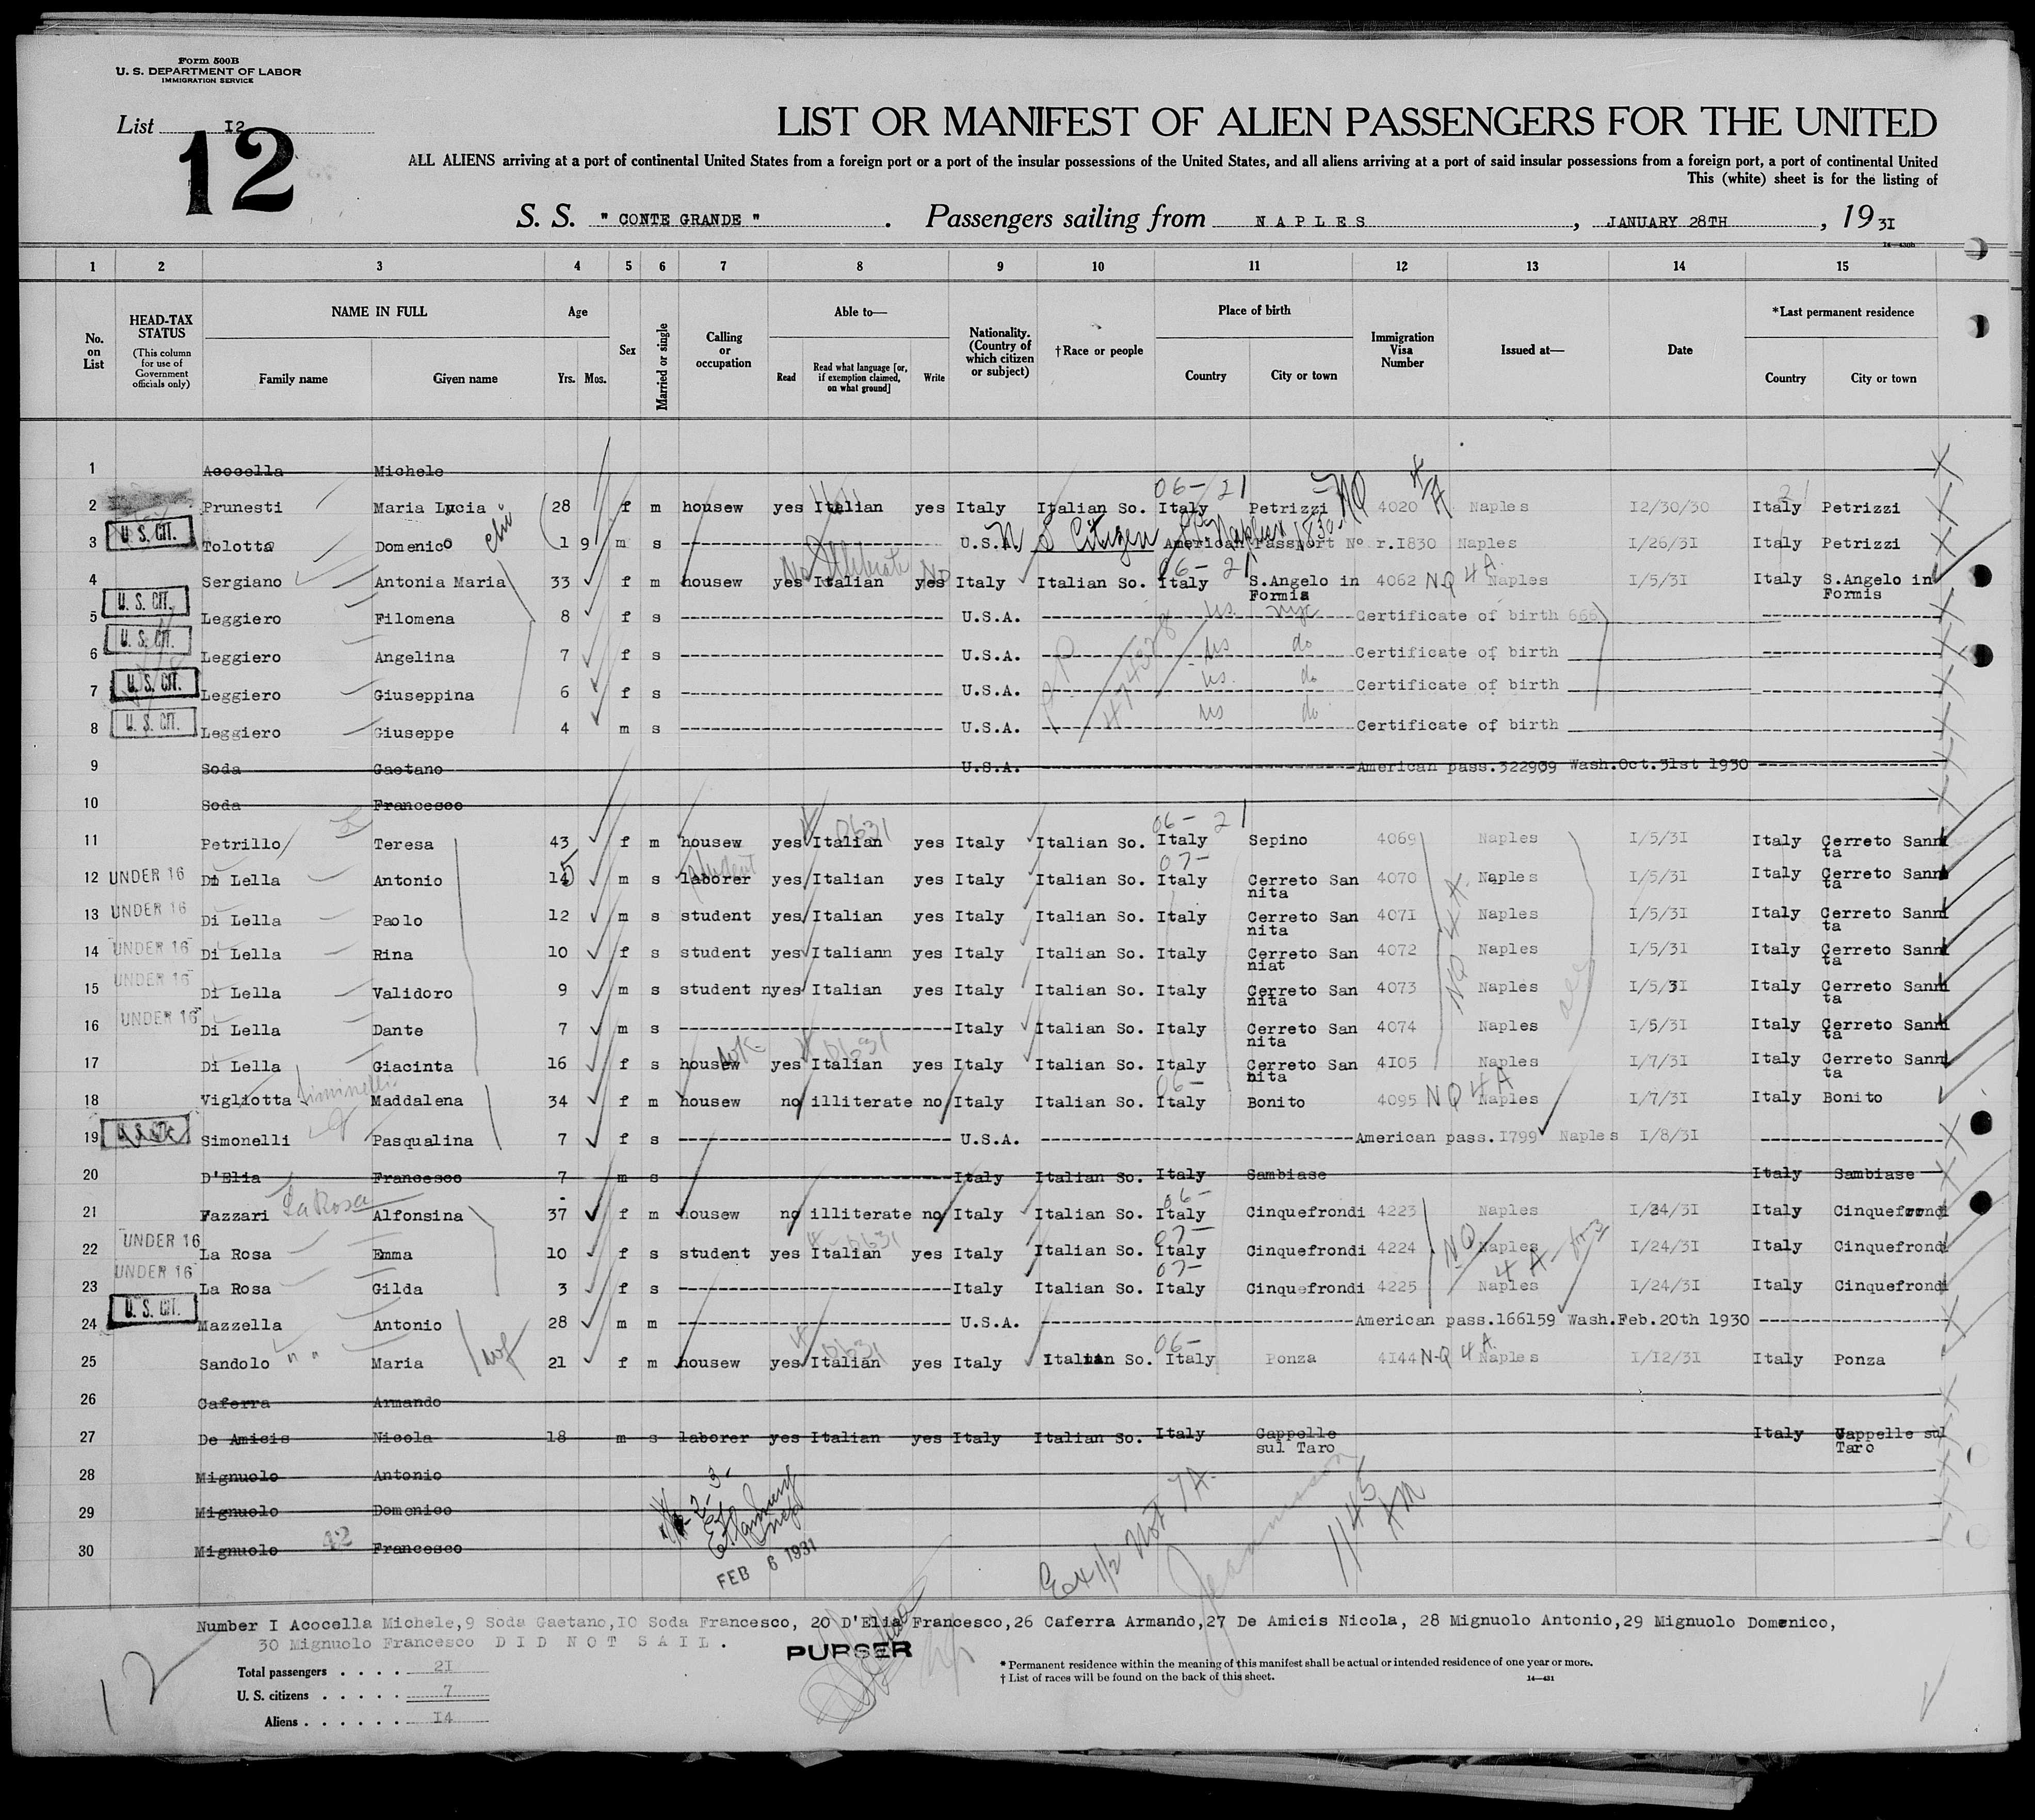 Form 500B
U. S. DEPARTMENT OF LABOR
IMMIGRATION SERVICE
List I2
12
LIST OR MANIFEST OF ALIEN PASSENGERS FOR THE UNITED
ALL ALIENS arriving at a port of continental United States from a foreign port or a port of the insular possessions of the United States, and all aliens arriving at a port of said insular possessions from a foreign port, a port of continental United
This (white) sheet is for the listing of
S. S. " CONTE GRANDE " . Passengers sailing from NAPLES , JANUARY 28TH , 19 3I
1 2 3 4 5 6 7 8 9 10 11 12 13 14 15
No. on List
HEAD-TAX STATUS (This column for use of Government officials only)
NAME IN FULL Family name Given name
Age Yrs. Mos.
Sex
Married or single
Calling or occupation
Able to— Read Read what language [or, if exemption claimed, on what ground] Write
Nationality. (Country of which citizen or subject)
†Race or people
Place of birth Country City or town
Immigration Visa Number
Issued at—
Date
*Last permanent residence Country City or town
1 Acocella Michele
06- 21 NQ
2 Prunesti Maria Lucia 28 f m housew yes Italian yes Italy Italian So. Italy Petrizzi 4020 Naples I2/30/30 Italy Petrizzi
U. S. CIT.
3 Tolotta Domenico 1 9 m s U.S.A. Citizen American Passport No r.I830 Naples I/26/3I Italy Petrizzi
06- 21
4 Sergiano Antonia Maria 33 f m housew yes Italian yes Italy Italian So. Italy S.Angelo in Formis 4062 NQ 4A Naples I/5/3I Italy S.Angelo in Formis
U. S. CIT.
5 Leggiero Filomena 8 f s U.S.A. us. nyc Certificate of birth 666
U. S. CIT.
6 Leggiero Angelina 7 f s U.S.A. us do Certificate of birth
U. S. CIT.
7 Leggiero Giuseppina 6 f s U.S.A. us. do Certificate of birth
U. S. CIT.
8 Leggiero Giuseppe 4 m s U.S.A. us do Certificate of birth
9 Soda Gaetano U.S.A. American pass.322909 Wash.Oct.3Ist I930
10 Soda Francesco
0631 06- 21
11 Petrillo Teresa 43 f m housew yes Italian yes Italy Italian So. Italy Sepino 4069 Naples I/5/3I Italy Cerreto Sanni ta
student 07-
12 UNDER 16 Di Lella Antonio 14 5 m s laborer yes Italian yes Italy Italian So. Italy Cerreto San nita 4070 Naples I/5/3I Italy Cerreto Sanni ta
13 UNDER 16 Di Lella Paolo 12 m s student yes Italian yes Italy Italian So. Italy Cerreto San nita 407I Naples I/5/3I Italy Cerreto Sanni ta
14 UNDER 16 Di Lella Rina 10 f s student yes Italiann yes Italy Italian So. Italy Cerreto San niat 4072 Naples I/5/3I Italy Cerreto Sanni ta
15 UNDER 16 Di Lella Validoro 9 m s student nyes Italian yes Italy Italian So. Italy Cerreto San nita 4073 NQ 4A Naples I/5/3I Italy Cerreto Sanni ta
16 UNDER 16 Di Lella Dante 7 m s Italy Italian So. Italy Cerreto San nita 4074 Naples I/5/3I Italy Cerreto Sanni ta
0631
17 Di Lella Giacinta 16 f s housew yes Italian yes Italy Italian So. Italy Cerreto San nita 4I05 Naples I/7/3I Italy Cerreto Sanni ta
06-
18 Vigliotta Maddalena 34 f m housew no illiterate no Italy Italian So. Italy Bonito 4095 NQ 4A Naples I/7/3I Italy Bonito
19 Simonelli Pasqualina 7 f s U.S.A. American pass.I799 Naples I/8/3I
20 D'Elia Francesco 7 m s Italy Italian So. Italy Sambiase Italy Sambiase
La Rosa 06-
21 Fazzari Alfonsina 37 f m housew no illiterate no Italy Italian So. Italy Cinquefrondi 4223 Naples I/24/3I Italy Cinquefrondi
0631 07-
22 UNDER 16 La Rosa Emma 10 f s student yes Italian yes Italy Italian So. Italy Cinquefrondi 4224 NQ 4A Naples I/24/3I Italy Cinquefrondi
07-
23 UNDER 16 La Rosa Gilda 3 f s Italy Italian So. Italy Cinquefrondi 4225 Naples I/24/3I Italy Cinquefrondi
U. S. CIT.
24 Mazzella Antonio 28 m m U.S.A. American pass.166159 Wash.Feb.20th 1930
0631 06-
25 Sandolo " " Maria wf 21 f m housew yes Italian yes Italy Italian So. Italy Ponza 4I44 N-Q 4A Naples I/I2/3I Italy Ponza
26 Caferra Armando
27 De Amicis Nicola 18 m s laborer yes Italian yes Italy Italian So. Italy Cappelle sul Taro Italy Cappelle sul Taro
28 Mignuolo Antonio
29 Mignuolo Domenico
30 Mignuolo 42 Francesco
FEB 6 1931
1145 AM
Number I Acocella Michele,9 Soda Gaetano,I0 Soda Francesco, 20 D'Elia Francesco,26 Caferra Armando,27 De Amicis Nicola, 28 Mignuolo Antonio,29 Mignuolo Domenico,
30 Mignuolo Francesco DID NOT SAIL.
PURSER
Total passengers . . . . 2I
U. S. citizens . . . . . 7
Aliens . . . . . . I4
12
* Permanent residence within the meaning of this manifest shall be actual or intended residence of one year or more.
† List of races will be found on the back of this sheet. 14—431